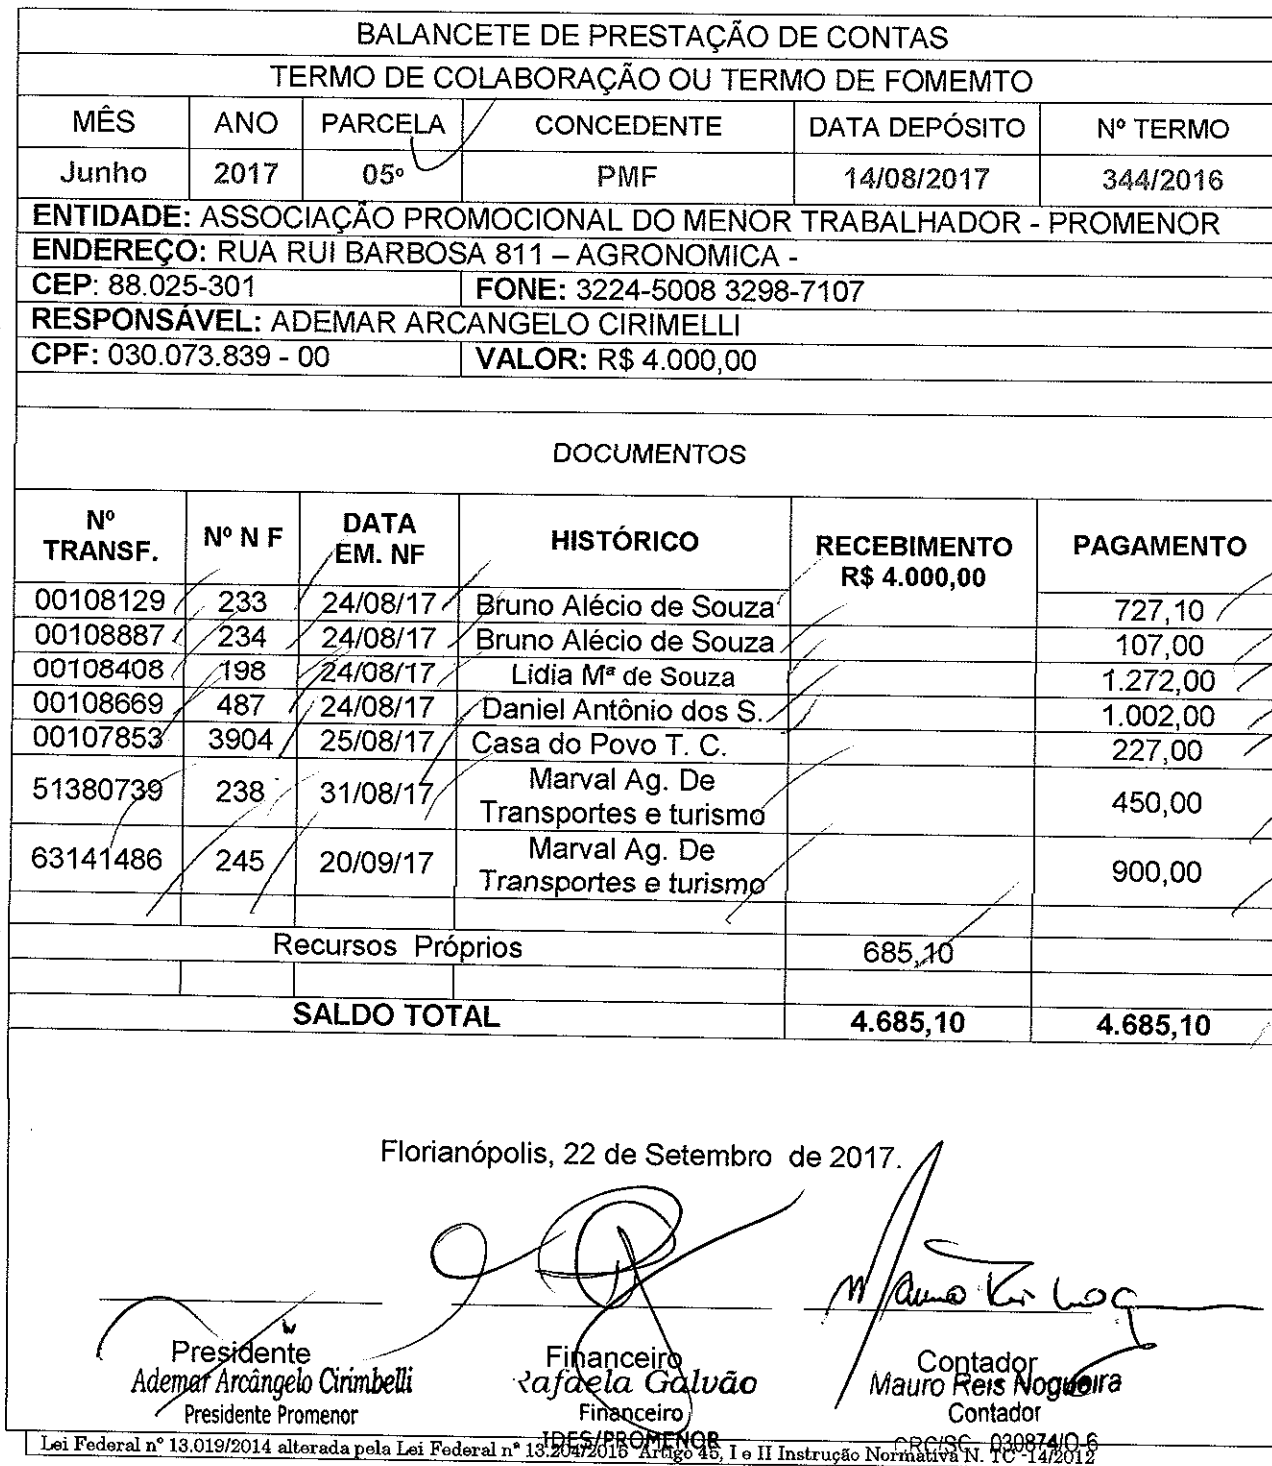 BALANCETE DE PRESTAÇÃO DE CONTAS
TERMO DE COLABORAÇÃO OU TERMO DE FOMEMTO
MÊS ANO PARCELA CONCEDENTE DATA DEPÓSITO Nº TERMO
Junho 2017 05º PMF 14/08/2017 344/2016
ENTIDADE: ASSOCIAÇÃO PROMOCIONAL DO MENOR TRABALHADOR - PROMENOR
ENDEREÇO: RUA RUI BARBOSA 811 – AGRONOMICA -
CEP: 88.025-301 FONE: 3224-5008 3298-7107
RESPONSÁVEL: ADEMAR ARCANGELO CIRIMELLI
CPF: 030.073.839 - 00 VALOR: R$ 4.000,00
DOCUMENTOS
Nº TRANSF. Nº N F DATA EM. NF HISTÓRICO RECEBIMENTO R$ 4.000,00 PAGAMENTO
00108129 233 24/08/17 Bruno Alécio de Souza 727,10
00108887 234 24/08/17 Bruno Alécio de Souza 107,00
00108408 198 24/08/17 Lidia Mª de Souza 1.272,00
00108669 487 24/08/17 Daniel Antônio dos S. 1.002,00
00107853 3904 25/08/17 Casa do Povo T. C. 227,00
51380739 238 31/08/17 Marval Ag. De Transportes e turismo 450,00
63141486 245 20/09/17 Marval Ag. De Transportes e turismo 900,00
Recursos Próprios 685,10
SALDO TOTAL 4.685,10 4.685,10
Florianópolis, 22 de Setembro de 2017.
Presidente Financeiro Contador
Ademar Arcângelo Cirimbelli Rafaela Galvão Mauro Reis Nogueira
Presidente Promenor Financeiro Contador
IDES/PROMENOR CRC/SC 030874/O-6
Lei Federal nº 13.019/2014 alterada pela Lei Federal nº 13.204/2015 Artigo 45, I e II Instrução Normativa N. TC -14/2012